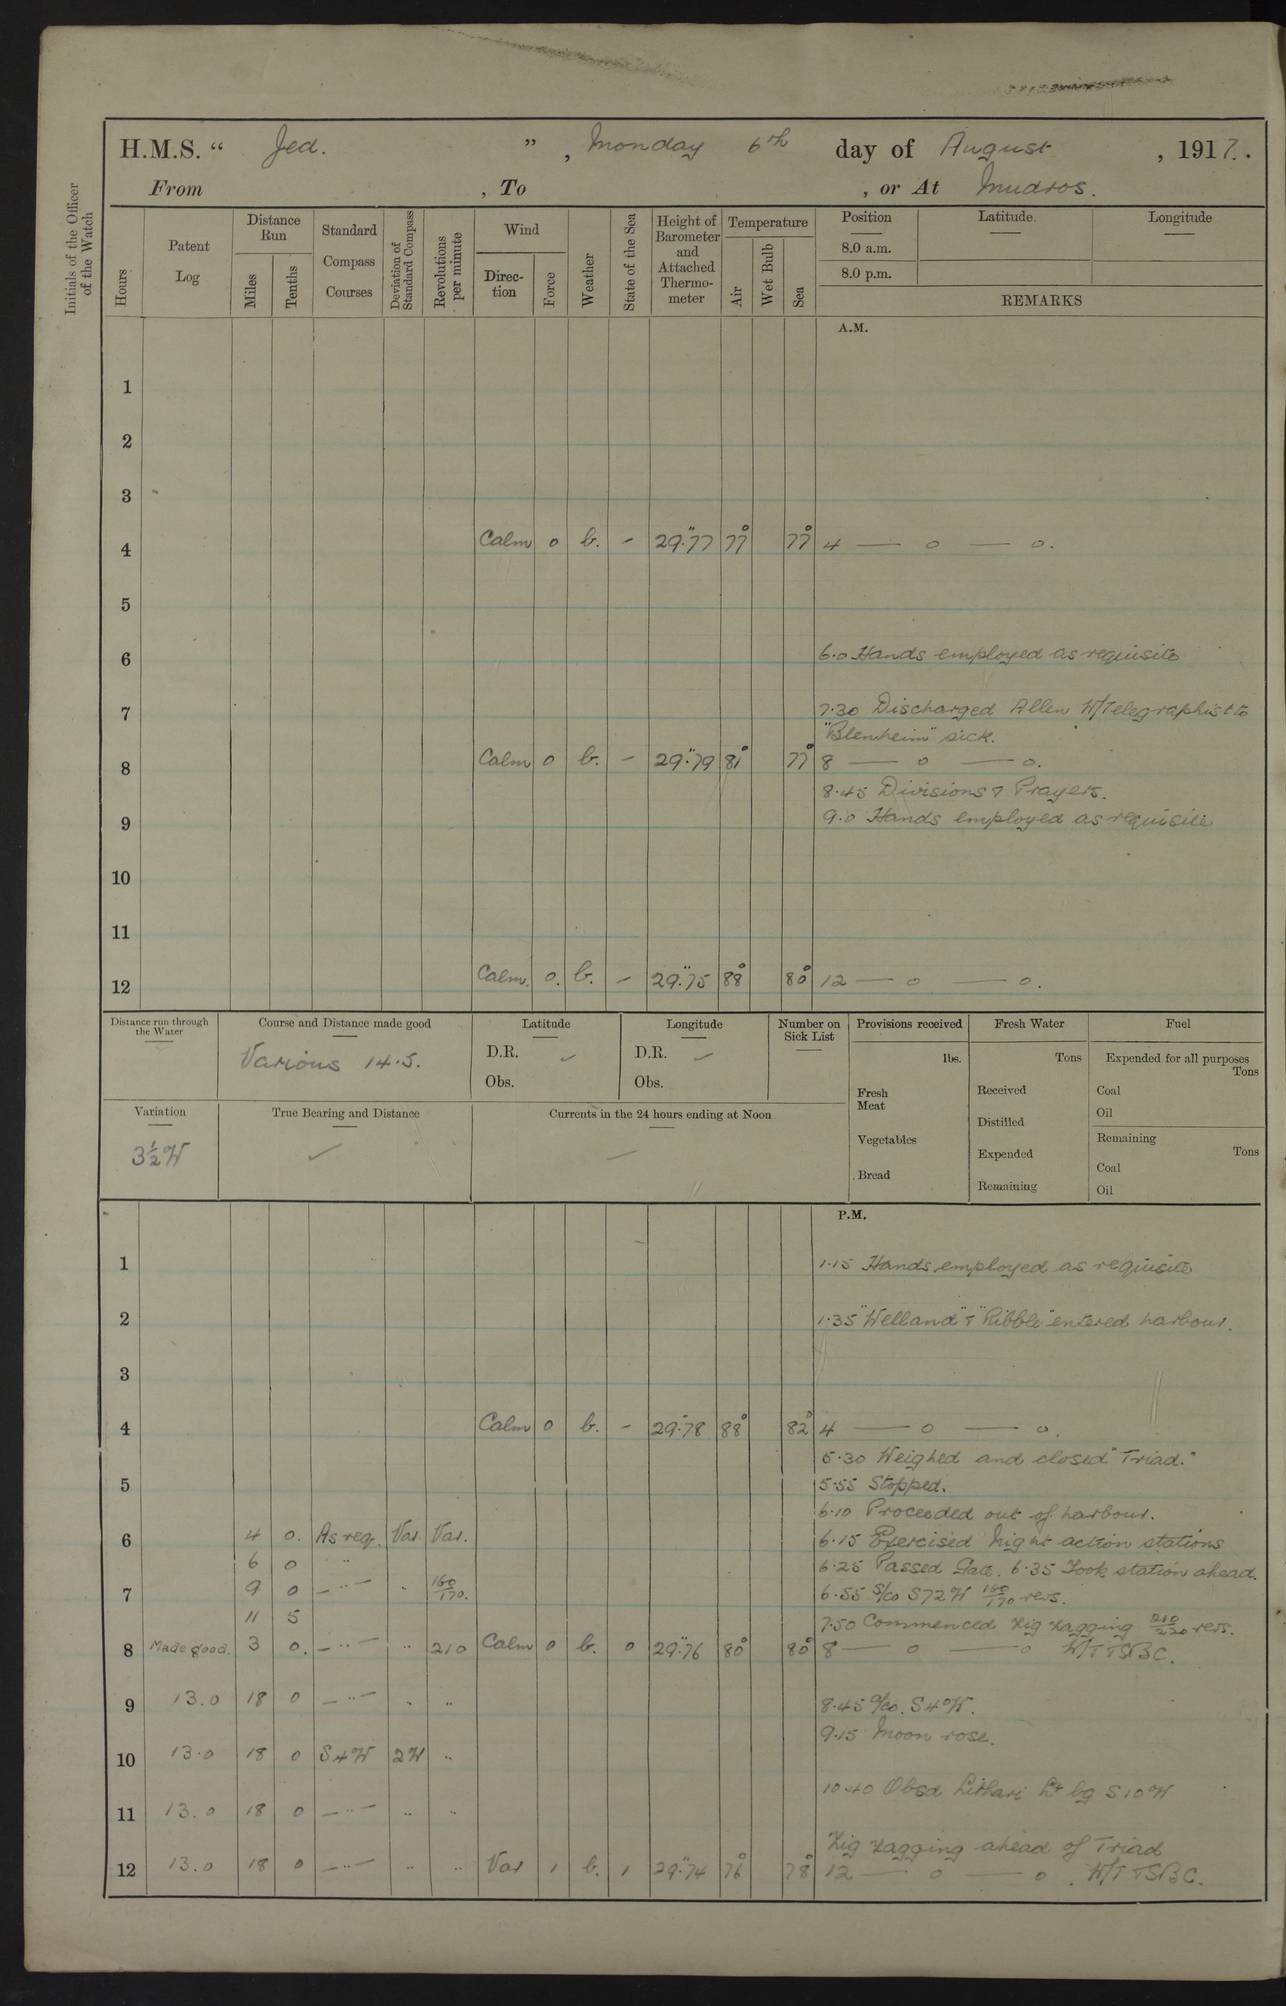 H.M.S. “ Jed. ” , Monday 6th day of August , 1917.
From , To , or At Mudros.
Initials of the Officer of the Watch
Hours
Patent Log
Distance Run
Miles
Tenths
Standard Compass Courses
Deviation of Standard Compass
Revolutions per minute
Wind
Direction
Force
Weather
State of the Sea
Height of Barometer and Attached Thermometer
Temperature
Air
Wet Bulb
Sea
Position Latitude Longitude
8.0 a.m.
8.0 p.m.
REMARKS
A.M.
1
2
3
4 Calm 0 b. – 29.77 77° 77° 4 — o — o.
5
6 6.0 Hands employed as requisite
7 7.30 Discharged Allen W/Telegraphist to
"Blenheim" sick.
8 Calm 0 b. – 29.79 81° 77° 8 — o — o.
8.45 Divisions & Prayers.
9 9.0 Hands employed as requisite
10
11
12 Calm. 0. b. – 29.75 88° 80° 12 — o — o.
Distance run through the Water
Course and Distance made good
Various 14.5.
Latitude
D.R. ✓
Obs.
Longitude
D.R. ✓
Obs.
Number on Sick List
Provisions received
lbs.
Fresh Meat
Vegetables
Bread
Fresh Water
Tons
Received
Distilled
Expended
Remaining
Fuel
Expended for all purposes
Tons
Coal
Oil
Remaining
Tons
Coal
Oil
Variation
3½ W
True Bearing and Distance
✓
Currents in the 24 hours ending at Noon
P.M.
1 1.15 Hands employed as requisite
2 1.35 "Welland" & "Ribble" entered harbour.
3
4 Calm 0 b. – 29.78 88° 82° 4 — o — o.
5.30 Weighed and closed "Triad."
5 5.55 Stopped.
6.10 Proceeded out of harbour.
6 4 0. As req. Var Var. 6.15 Exercised Night action stations
6 0 " 6.25 Passed Gate. 6.35 Took station ahead.
7 9 0 — " — " 160/170. 6.55 S/co S72W 160/170 revs.
11 5 7.50 Commenced zig zagging 210/220 revs.
8 Made good. 3 0. — " — " 210 Calm 0 b. 0 29.76 80° 80° 8 — o — o W/T TSBC.
9 13.0 18 0 — " — " " 8.45 a/co. S4W.
9.15 Moon rose.
10 13.0 18 0 S4W 2W "
10.40 Obsd Lithari Lt bg S10W
11 13.0 18 0 — " — " "
Zig zagging ahead of Triad
12 13.0 18 0 — " — " " Var 1 b. 1 29.74 76° 78° 12 — o — o. W/T TSBC.